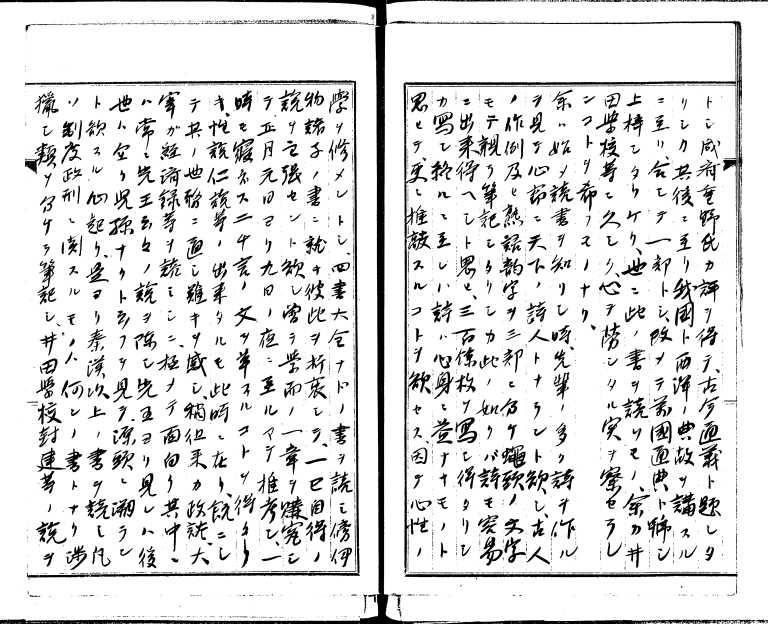 トシ咸府重野氏カ評ヲ得テ古今通義ト題シタ
リシカ其後ニ至リ我國ト西洋ノ典故ヲ講スル
ニ至リ合シテ一部トシ改メテ萬國通典ト号シ
上梓シタリケリ、世ニ此ノ書ヲ読ムモノ、余カ井
田学校等ニ久シク心ヲ労シタル実ヲ察セラレ
ンコトヲ希フノミナリ、
余ハ始メ読書ヲ知リシ時、先輩ノ多ク詩ヲ作ル
ヲ見テ心窃ニ天下ノ詩人トナラント欲シ古人
ノ作例及ヒ熟語韵字ヲ三部ニ分ケ蠅頭ノ文字
モテ親ラ筆記シタリシカ此ノ如クハ詩モ容易
ニ出来得ヘシト思ヒ、三百余枚ヲ写シ得タリシ
カ写シ終ルニ至レハ詩ハ心身ニ益ナキモノト
思ヒテ更ニ推敲スルコトヲ欲セス因テ心性ノ
學ヲ修メントシ、四書大全ナドノ書ヲ読ミ傍伊
物諸子ノ書ニ就キ彼此ヲ折衷シテ、一己自得ノ
説ヲ主張セント欲シ曽テ学而ノ一章ヲ講究シ
テ正月元日ヨリ九日ノ夜ニ至ルマテ推考シ、一
時モ寝ネス二千言ノ文ヲ草スルコトヲ得タリ
キ、性説仁説等ノ出来タルモ此時ニ在リ、既ニシ
テ其ノ世治ニ通シ難キヲ感シ、稍徂来カ政談、太
宰カ経済録等ヲ読ミシニ極メテ面白ク其中ニ
ハ常ニ先王云々ノ説ヲ陳シ先王ヨリ見レハ後
世ト全ク児孫ナリト云フヲ見テ、源頭ニ溯ラン
ト欲スル心起リ、是ヨリ秦漢以上ノ書ヲ読ミ凡
ソ制度政刑ニ関スルモノハ何レノ書トナク渉
獵シ類ヲ分ケテ筆記シ、井田学校封建等ノ説ヲ